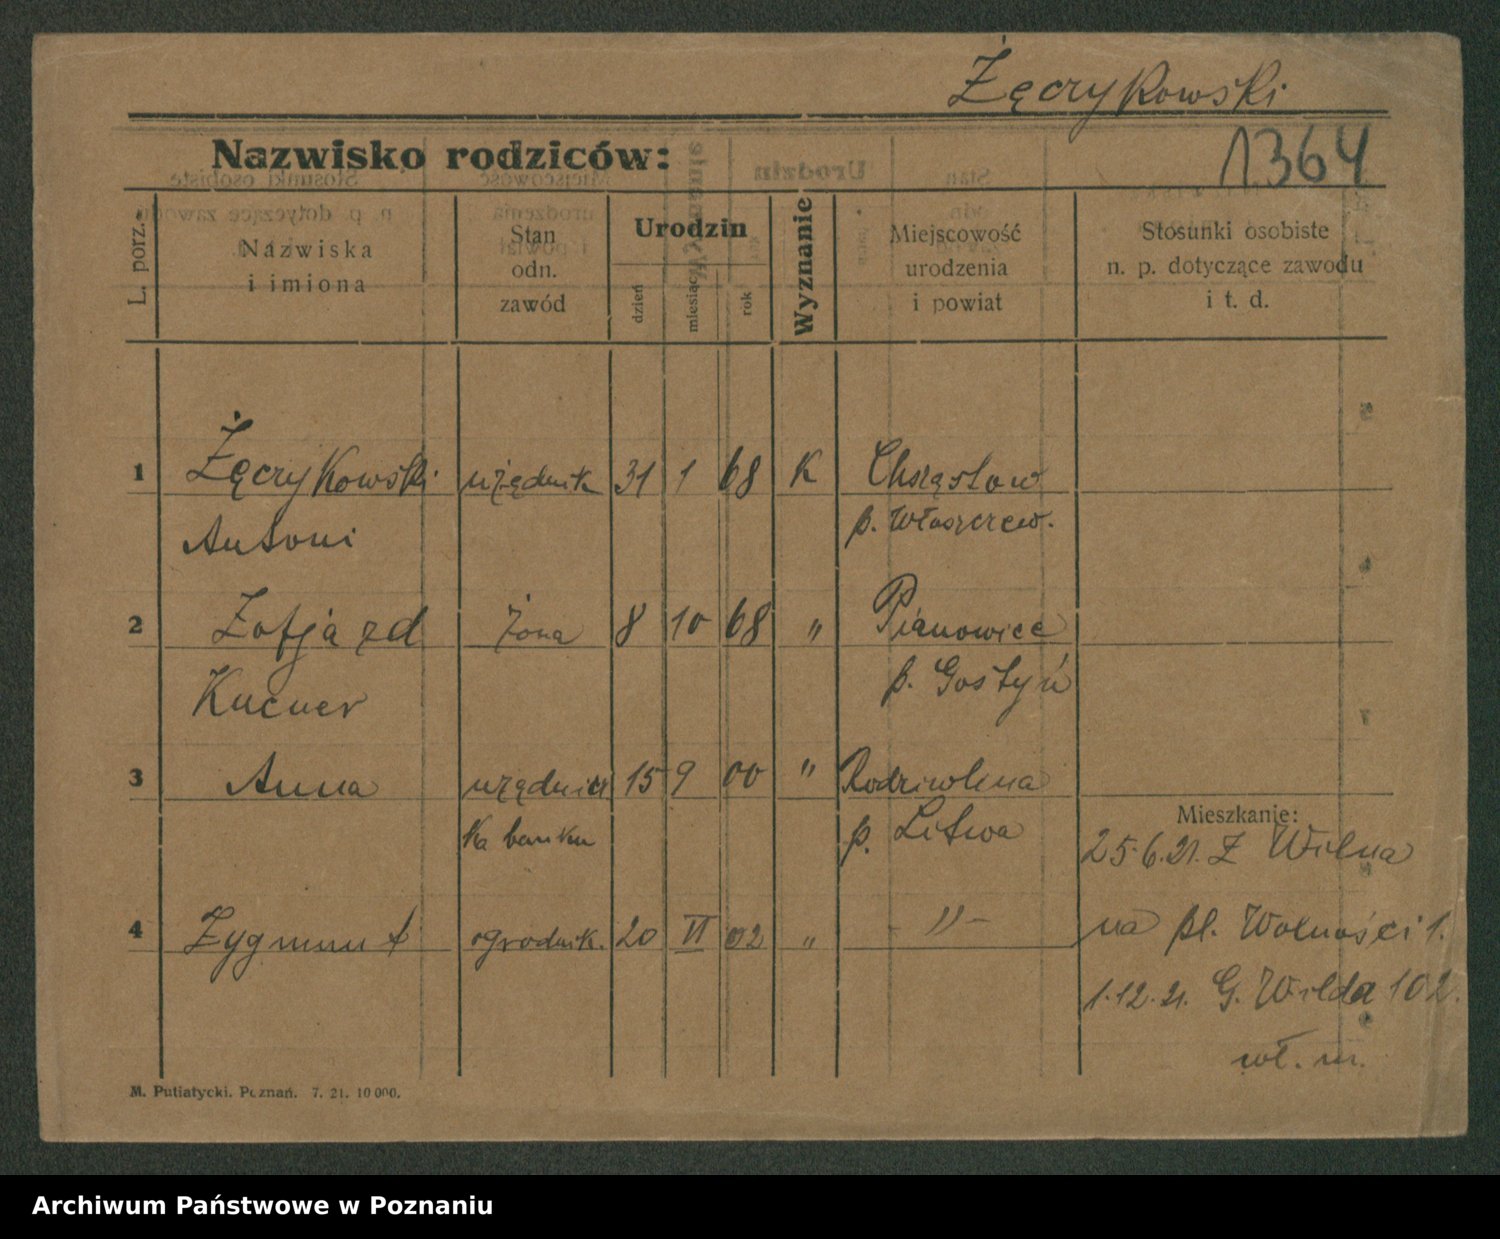 Żęczykowski
1364
Nazwisko rodziców:
L. porz.
Nazwiska
i imiona
Stan
odn.
zawód
Urodzin
dzień
miesiąc
rok
Wyznanie
Miejscowość
urodzenia
i powiat
Stosunki osobiste
n. p. dotyczące zawodu
i t. d.
1 Żęczykowski urzędnik 31 1 68 K Chrząstow
Antoni p. Włoszczew.
2 Zofja zd żona 8 10 68 " Pianowice
Kucner p. Gostyń
3 Anna urzędnicz 15 9 00 "
ka banku p. Litwa
Mieszkanie:
25.6.21. Z Wilna
4 Zygmunt ogrodnik. 20 VI 02 " "-
na pl. Wolności 1.
1.12.21. G. Wilda 102.
wł. m.
M. Putiatycki. Poznań. 7. 21. 10 000.
Archiwum Państwowe w Poznaniu